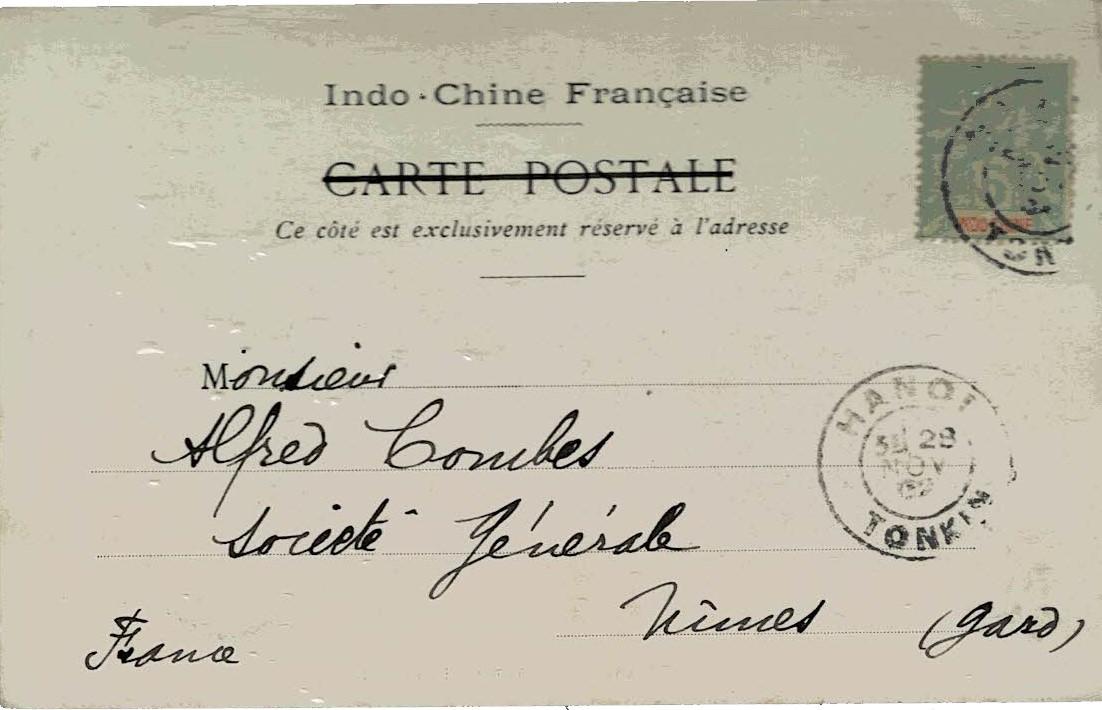 Indo-Chine Française
CARTE POSTALE
Ce côté est exclusivement réservé à l'adresse
Monsieur
Alfred Combes
Société Générale
Nîmes (Gard)
France
HANOI
28
NOV
02
TONKIN
5